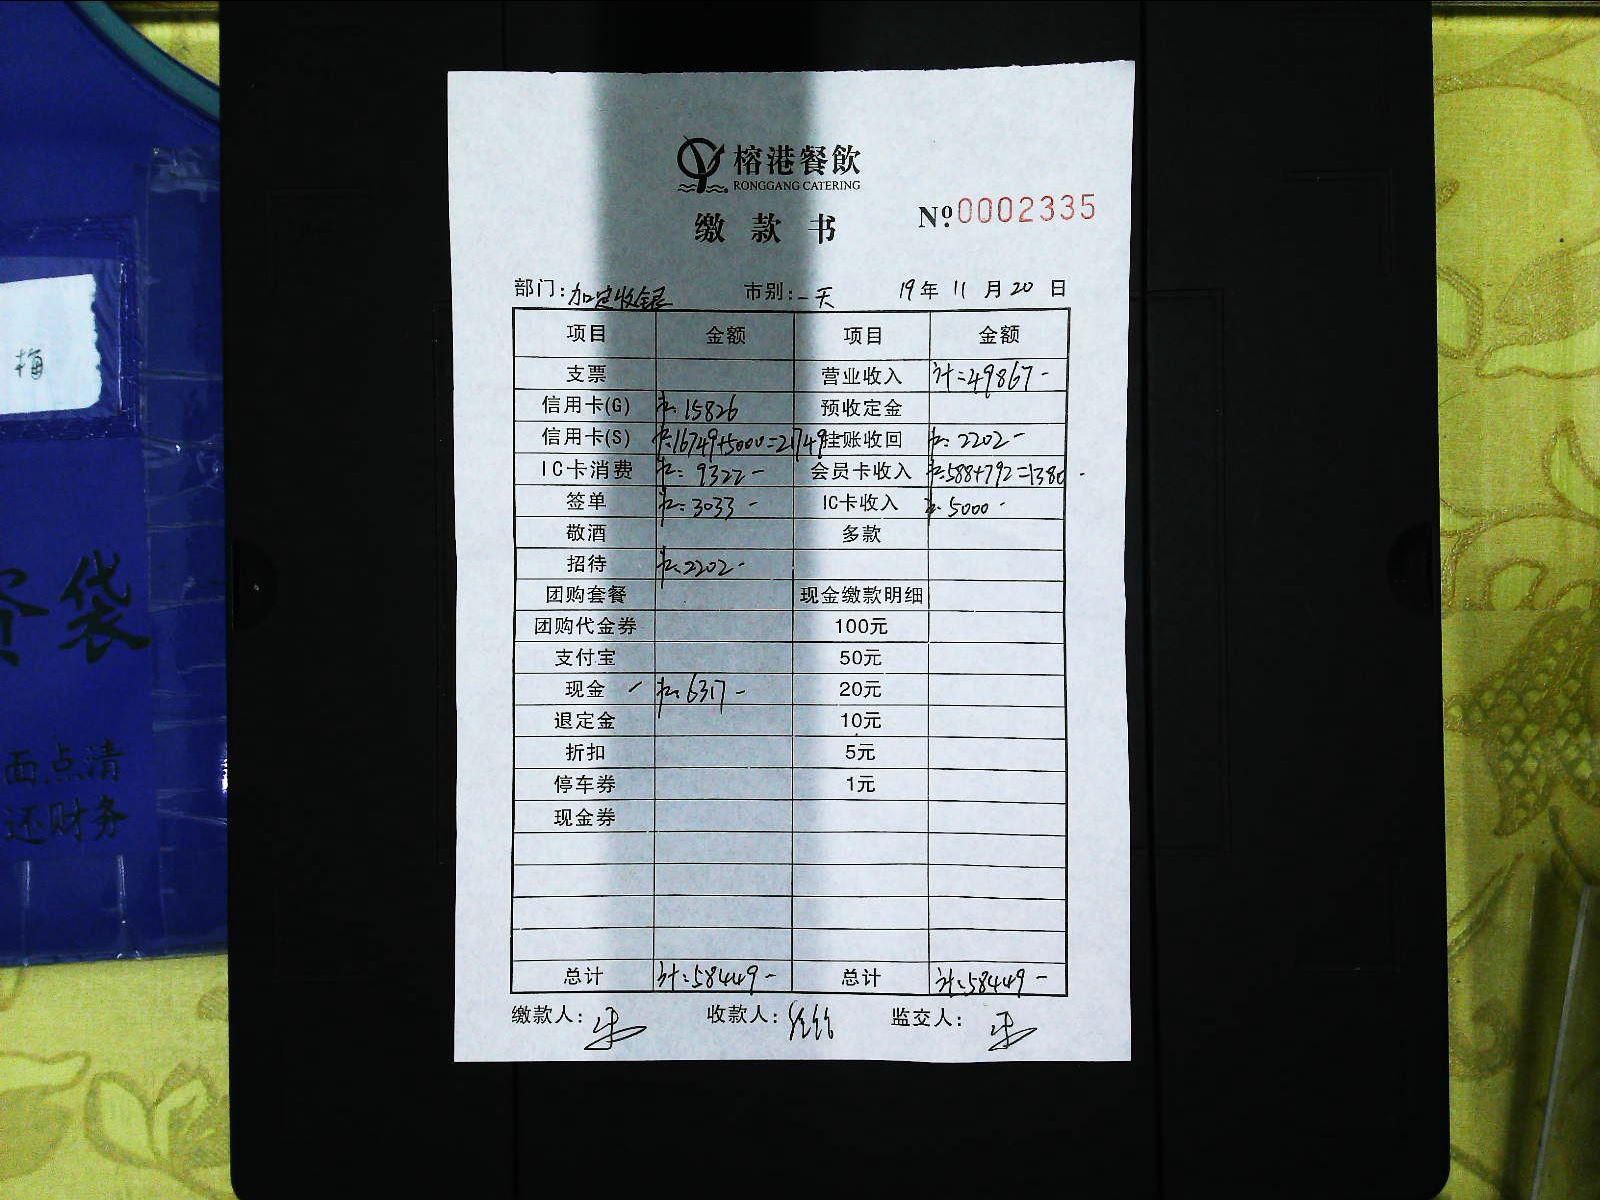 榕港餐飲
RONGGANG CATERING
缴款书
№ 0002335
部门: 加定收银 市别: 一天 19年 11月 20日
项目 金额 项目 金额
支票 营业收入 计=49867-
信用卡(G) 15826 预收定金
信用卡(S) 16749+5000=21749- 挂账收回 2202-
IC卡消费 9322- 会员卡收入 588+792=1380-
签单 3033- IC卡收入 5000-
敬酒 多款
招待 2202-
团购套餐 现金缴款明细
团购代金券 100元
支付宝 50元
现金 6317- 20元
退定金 10元
折扣 5元
停车券 1元
现金券
总计 计=58449- 总计 计=58449-
缴款人: 收款人: 监交人:
梅
袋
面点清
还财务